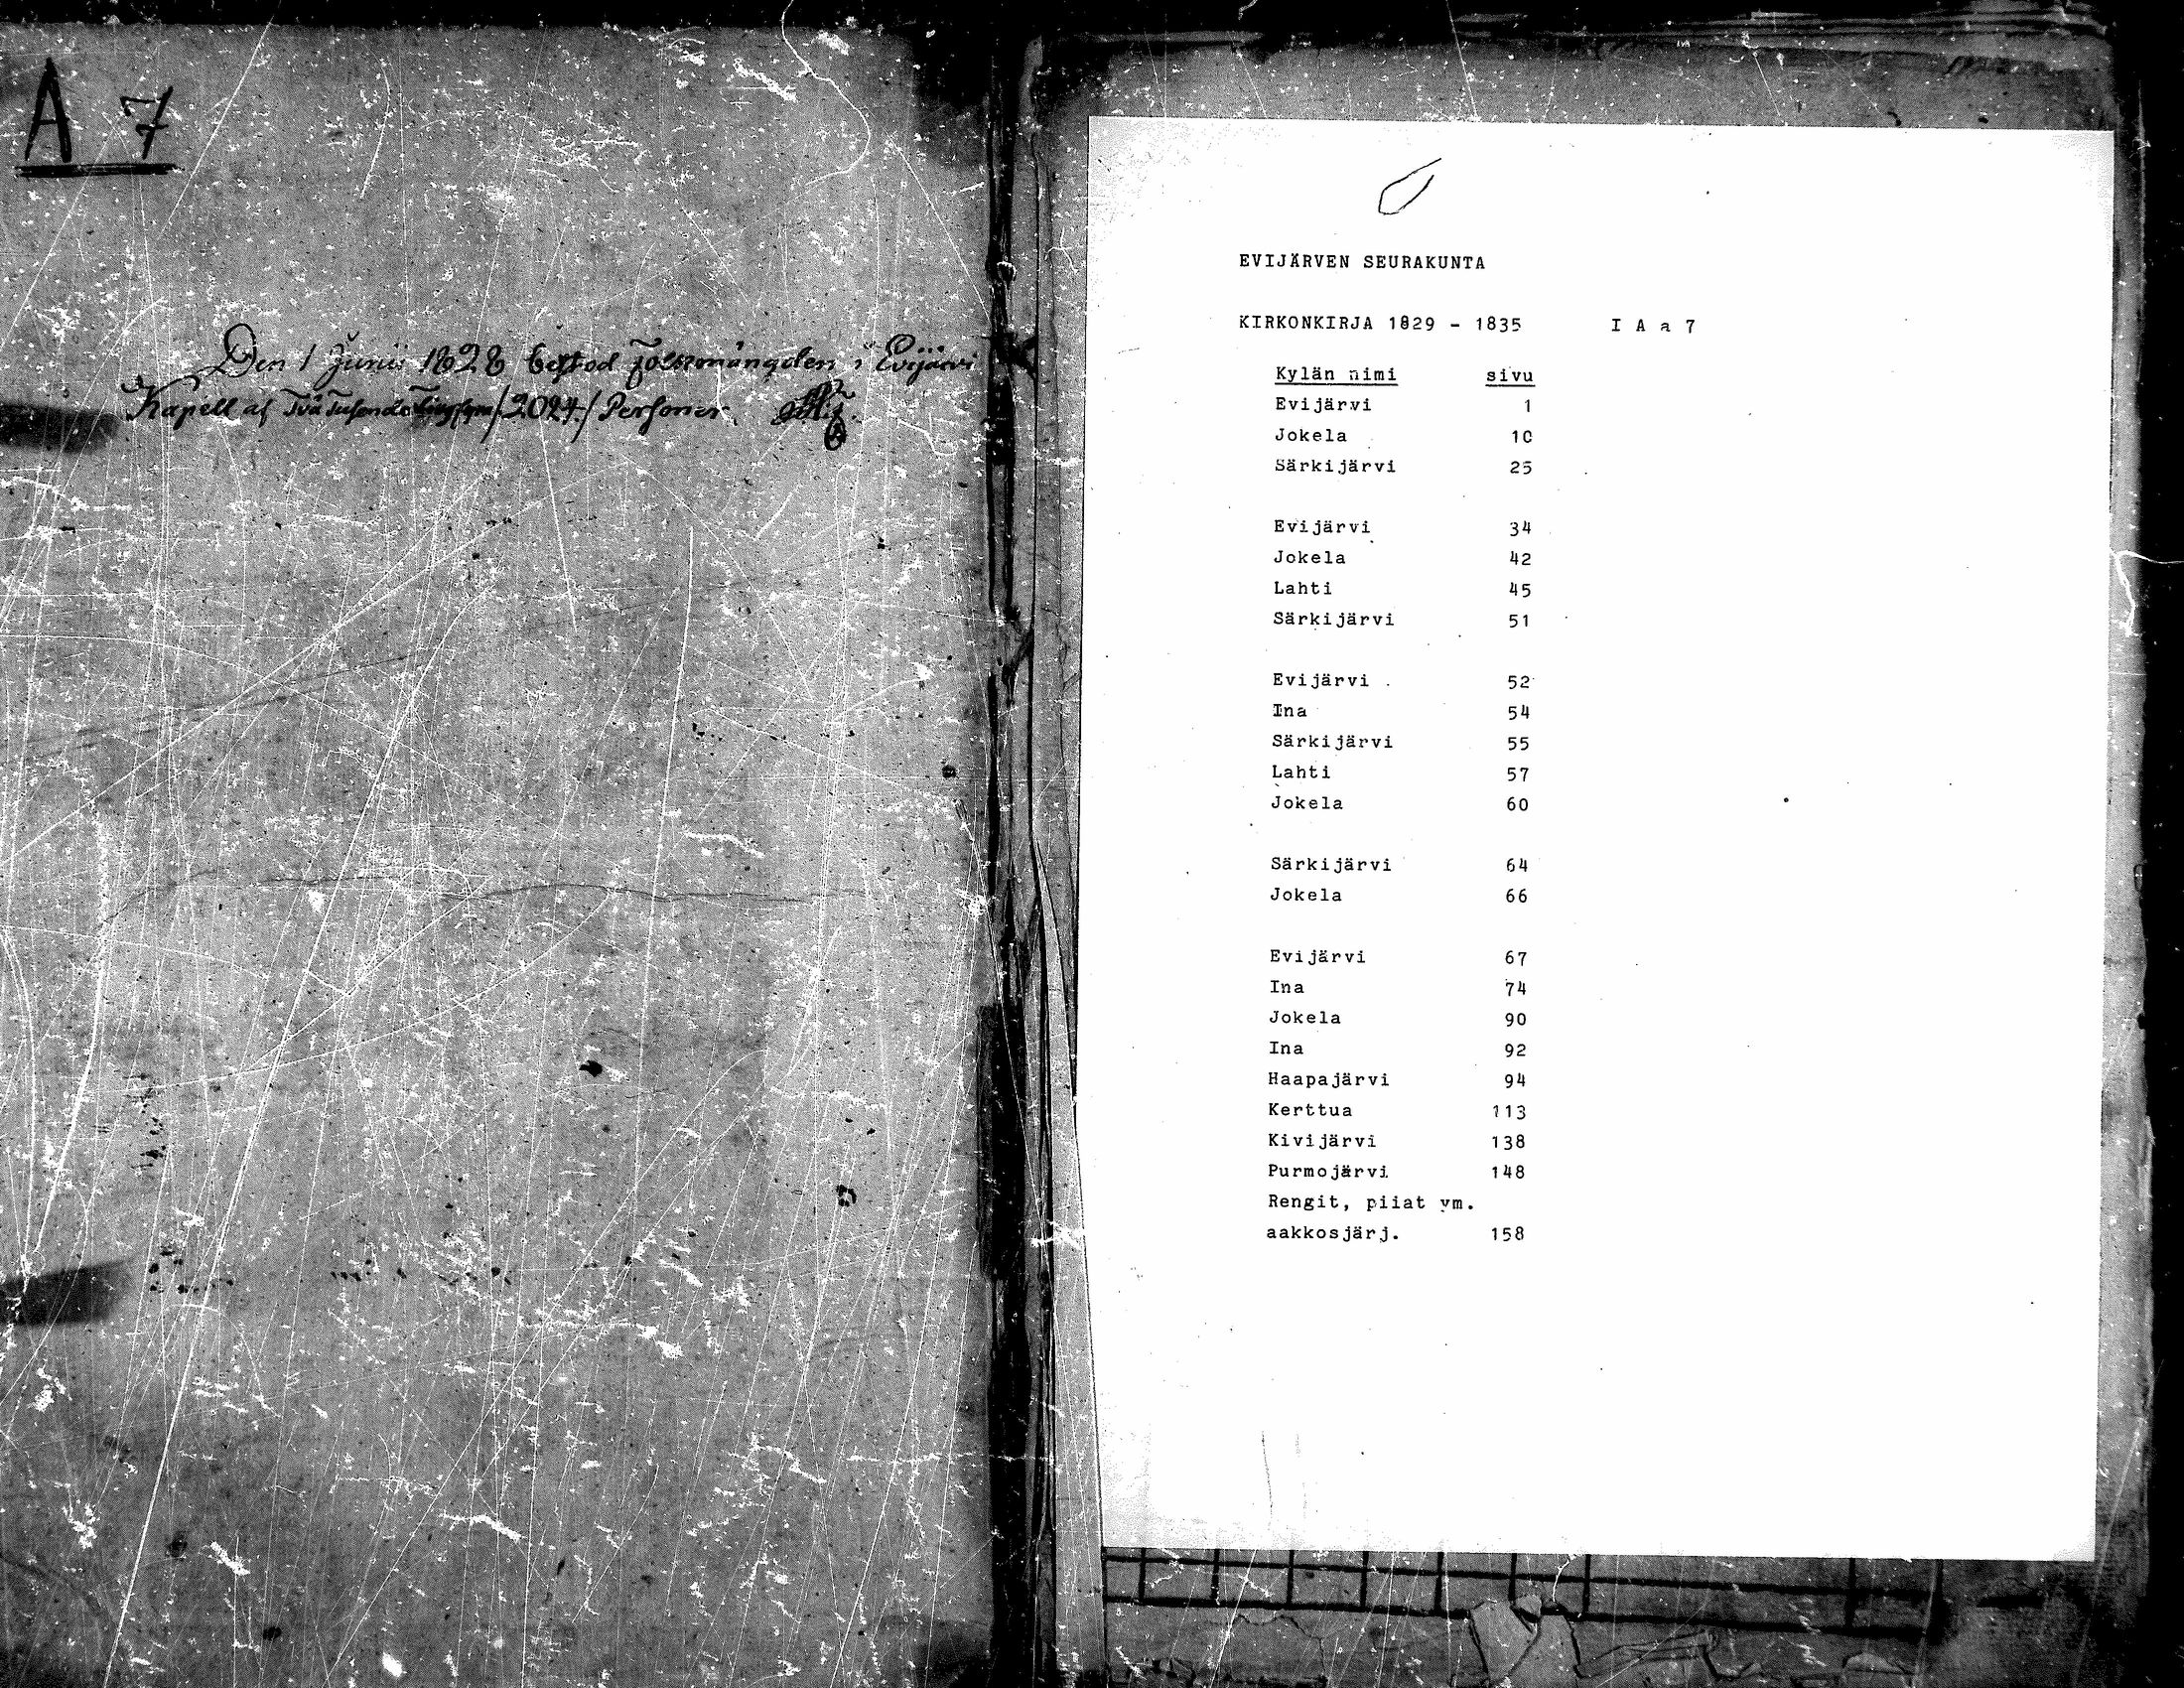 A 7
Den 1 Junii 1828 bestod Folkmängden i Evijärvi
Kapell af Två Tusende /2024/ Personer
EVIJÄRVEN SEURAKUNTA
KIRKONKIRJA 1829 - 1835 I A a 7
Kylän nimi sivu
Evijärvi 1
Jokela 10
Särkijärvi 25
Evijärvi 34
Jokela 42
Lahti 45
Särkijärvi 51
Evijärvi 52
Ina 54
Särkijärvi 55
Lahti 57
Jokela 60
Särkijärvi 64
Jokela 66
Evijärvi 67
Ina 74
Jokela 90
Ina 92
Haapajärvi 94
Kerttua 113
Kivijärvi 138
Purmojärvi 148
Rengit, piiat ym.
aakkosjärj. 158